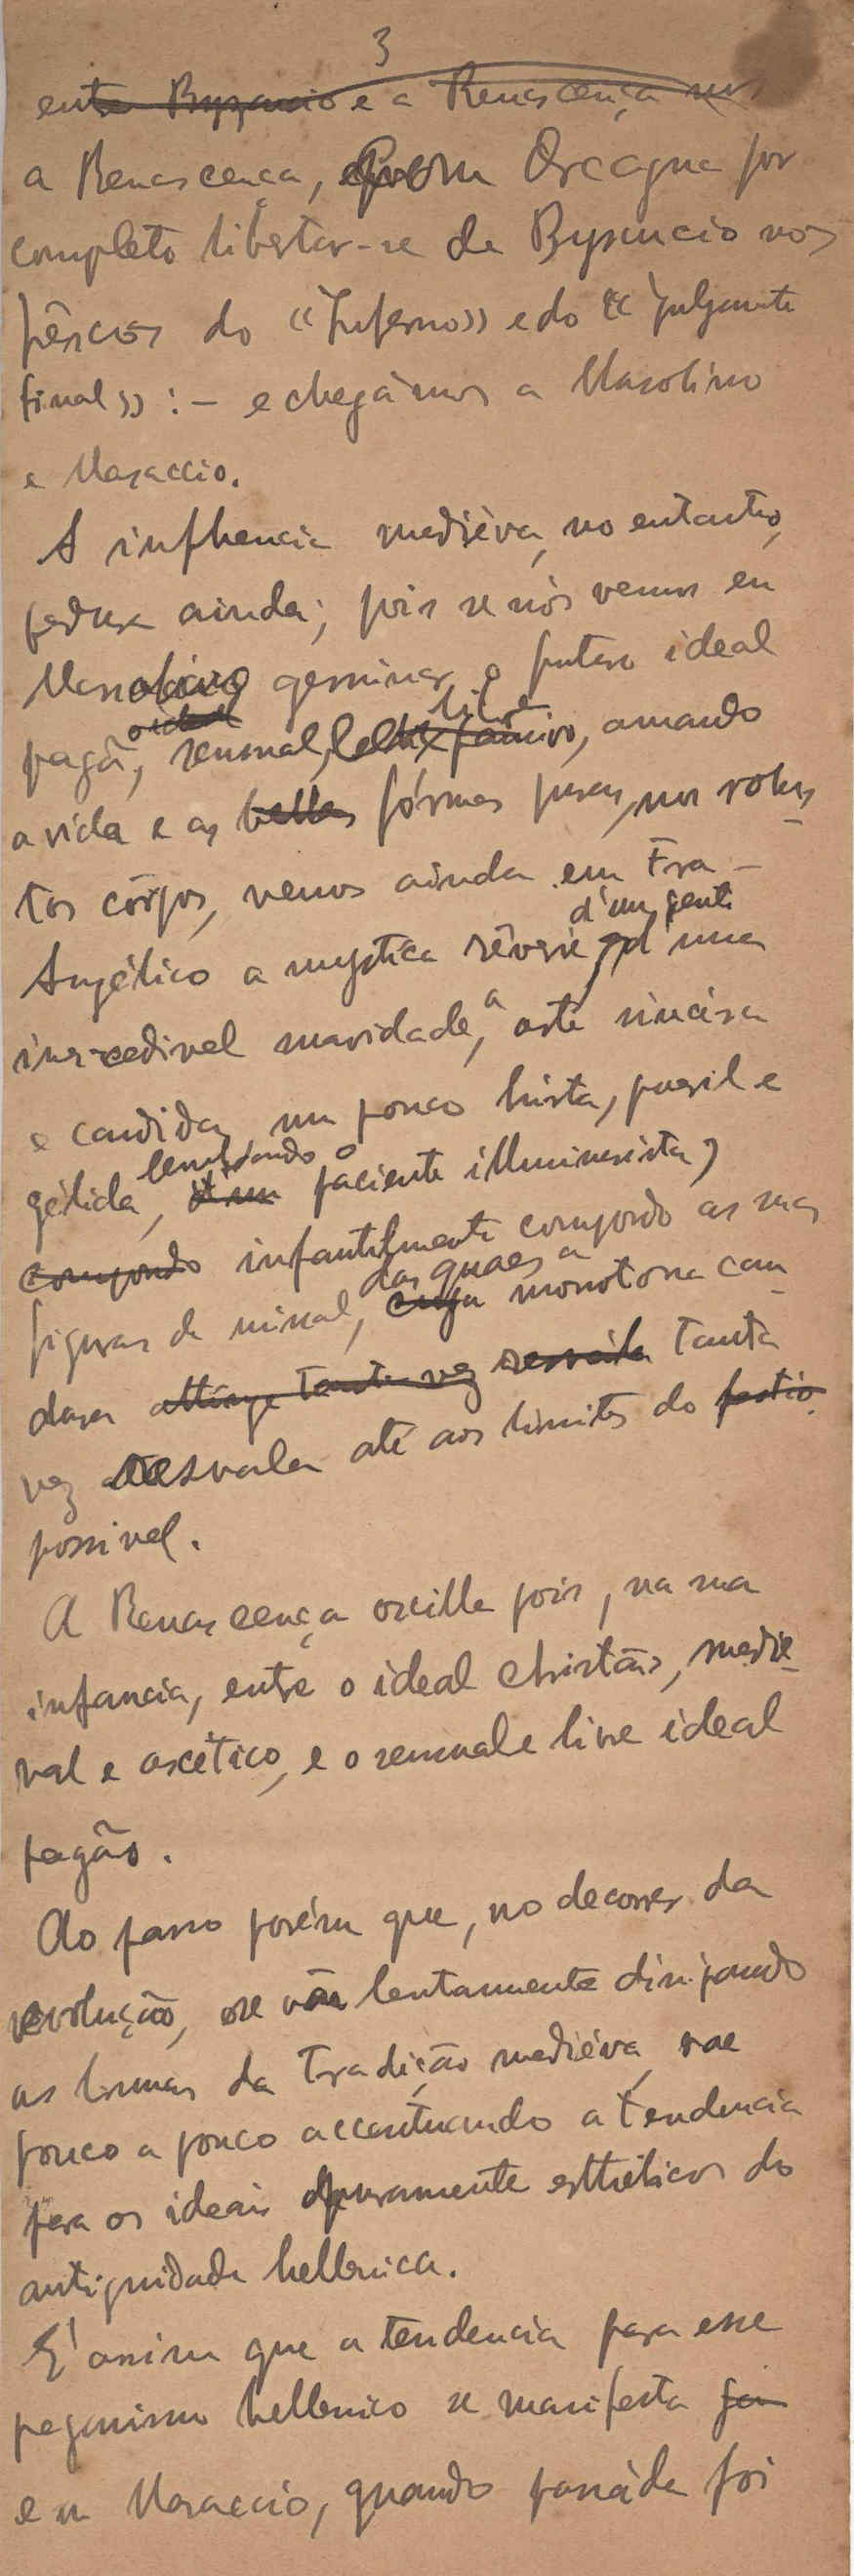 3
ente Byzancio e a Renascença nos
a Renascença, quem Orcagna por
completo libertar-se de Bysancio nos
frêscos do «Inferno» e do «Julgamento
final»: – e chegâmos a Masolino
e Masaccio.
A influencia mediéva, no entanto,
perdura ainda; pois se nós vemos em
Masolino germinar o futuro ideal
ideal libre
pagã, sensual, , amando
a vida e as bellas fórmas puras, nos robus-
tos córpos, vemos ainda em Fra –
d'um gent
Angélico a mystica rêverie d'uma
incredivel suavidade, a arte sincéra
e candida, um pouco hirta, pueril e
lembrando o
gélida, d'um paciente illuminurista,
compondo infantilmente compondo as suas
das quaes a
figuras de missal, cuja monotona can-
dura attinge tanta vez resvála tanta
vez resvala até aos limites do fastio.
possivel.
A Renascença oscilla pois, na sua
infancia, entre o ideal christão, medie-
val e ascético, e o sensual e livre ideal
pagão.
Ao passo porém que, no decorrer da
evolução, se vão lentamente dissipando
as brumas da tradição mediéva, vae
pouco a pouco accentuando a tendencia
para os ideais puramente esthéticos da
antiguidade hellenica.
E' assim que a tendencia para esse
paganismo hellenico se manifesta já
em Masaccio, quando passáda foi